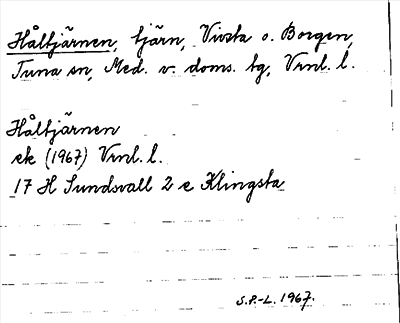 Håltjärnen, tjärn, Vivsta o. Borgen,
Tuna sn, Med. v. doms. tg, Vrnl. l.
Håltjärnen
ek (1967) Vrnl. l.
17 H Sundsvall 2 e Klingsta
S.P.-L. 1967.